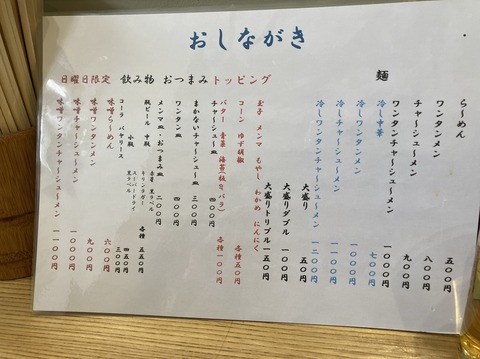 おしながき
麺
らーめん 五〇〇円
チャーシューメン 八〇〇円
ワンタンメン 九〇〇円
ワンタンチャ〜シュ〜メン 一〇〇〇円
冷し中華 七〇〇円
冷しチャ〜シュ〜メン 一〇〇〇円
冷しワンタンメン 一一〇〇円
冷しワンタンチャ〜シュ〜メン 一二〇〇円
大盛り 五〇円
大盛りダブル 一〇〇円
大盛りトリプル 一五〇円
トッピング
玉子 メンマ もやし わかめ にんにく
コーン ゆず胡椒 各種五〇円
バター 青菜 海苔(板のり、バラ) 各種一〇〇円
おつまみ
チャ〜シュ〜皿 四〇〇円
まかないチャ〜シュ〜皿
ワンタン皿 四〇〇円
メンマ皿・おつまみ皿 二〇〇円
飲み物
瓶ビール 中瓶 黒ラベル
キリンラガー
スーパードライ 各種 五五〇円
小瓶 黒ラベル 四五〇円
コーラ バヤリース 三〇〇円
日曜日限定
味噌ら〜めん 六〇〇円
味噌ワンタンメン 九〇〇円
味噌チャ〜シュ〜メン 一〇〇〇円
味噌ワンタンチャ〜シュ〜メン 一一〇〇円